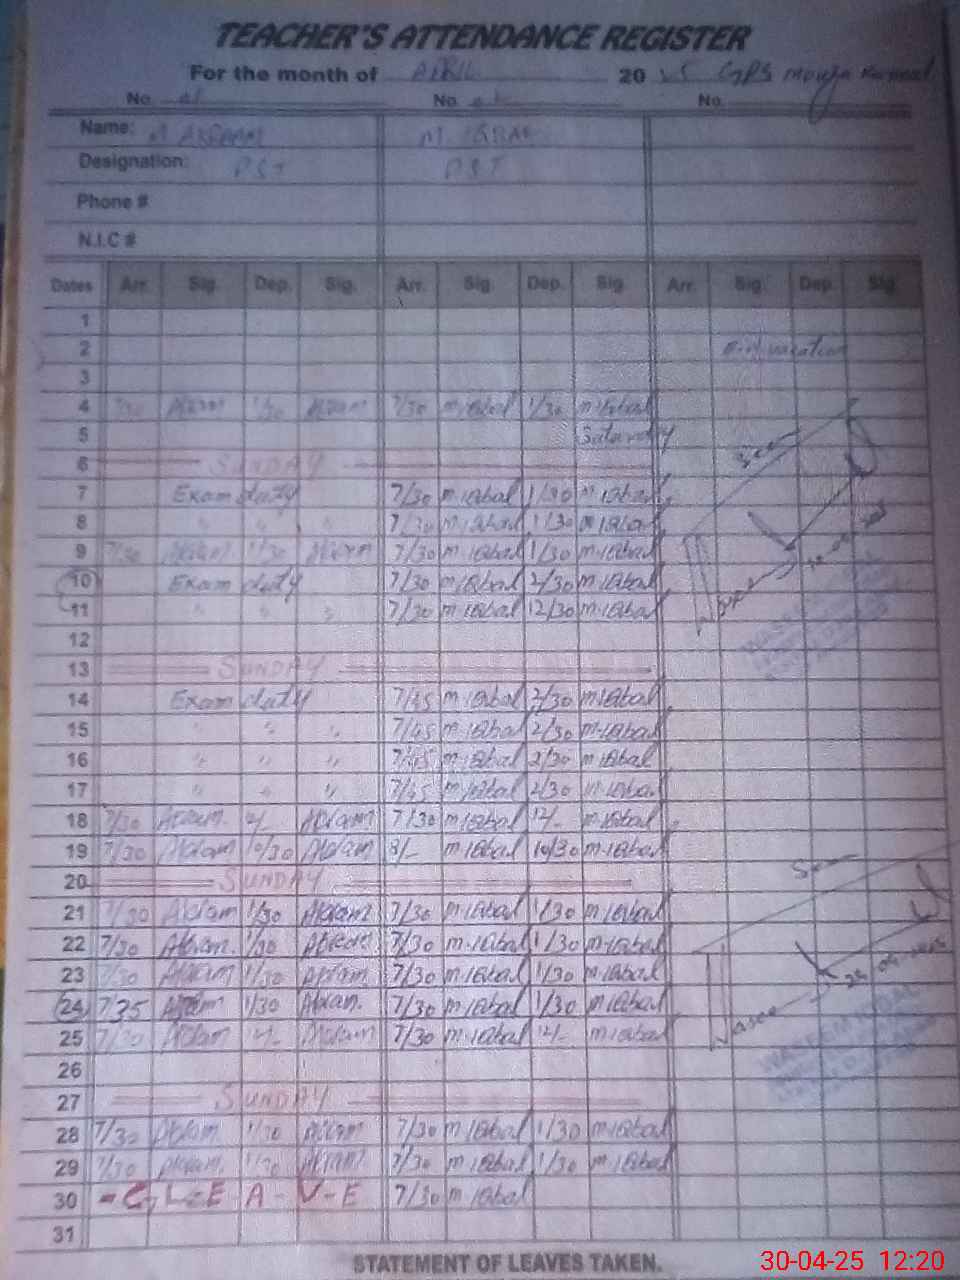 TEACHER'S ATTENDANCE REGISTER
For the month of APRIL 20 GPS Mouja
No. 01 No. No.
Name: M AKRAM M. IQBAL
Designation: PST PST
Phone #
N.I.C #
Dates Arr. Sig. Dep. Sig. Arr. Sig. Dep. Sig. Arr. Sig. Dep. Sig.
1
2 Eid vacation
3
4 7/30 Akram 1/30 Akram 7/30 m.iqbal 1/30 m.iqbal
5 Saturday
6 SUNDAY
7 Exam duty 7/30 m.iqbal 1/30 m.iqbal
8 " " " 7/30 m.iqbal 1/30 m.iqbal
9 7/30 Akram 1/30 Akram 7/30 m.iqbal 1/30 m.iqbal
10 Exam duty 7/30 m.iqbal 2/30 m.iqbal
11 " " " 7/30 m.iqbal 12/30 m.iqbal
12
13 SUNDAY
14 Exam duty 7/45 m.iqbal 2/30 m.iqbal
15 " " " 7/45 m.iqbal 2/30 m.iqbal
16 " " " 7/45 m.iqbal 2/30 m.iqbal
17 " " " 7/45 m.iqbal 2/30 m.iqbal
18 7/30 Akram 12/- Akram 7/30 m.iqbal 12/- m.iqbal
19 7/30 Akram 10/30 Akram 8/- m.iqbal 10/30 m.iqbal
20 SUNDAY
21 7/30 Akram 1/30 Akram 7/30 m.iqbal 1/30 m.iqbal
22 7/30 Akram 1/30 Akram 7/30 m.iqbal 1/30 m.iqbal
23 7/30 Akram 1/30 Akram 7/30 m.iqbal 1/30 m.iqbal
24 7/35 Akram 1/30 Akram 7/30 m.iqbal 1/30 m.iqbal
25 7/30 Akram 12/- Akram 7/30 m.iqbal 12/- m.iqbal
26
27 SUNDAY
28 7/30 Akram 1/30 Akram 7/30 m.iqbal 1/30 m.iqbal
29 7/30 Akram 1/30 Akram 7/30 m.iqbal 1/30 m.iqbal
30 - C, L-E A - V - E 7/30 m.iqbal
31
Seen
WASEEM IQBAL
STATEMENT OF LEAVES TAKEN.
30-04-25 12:20